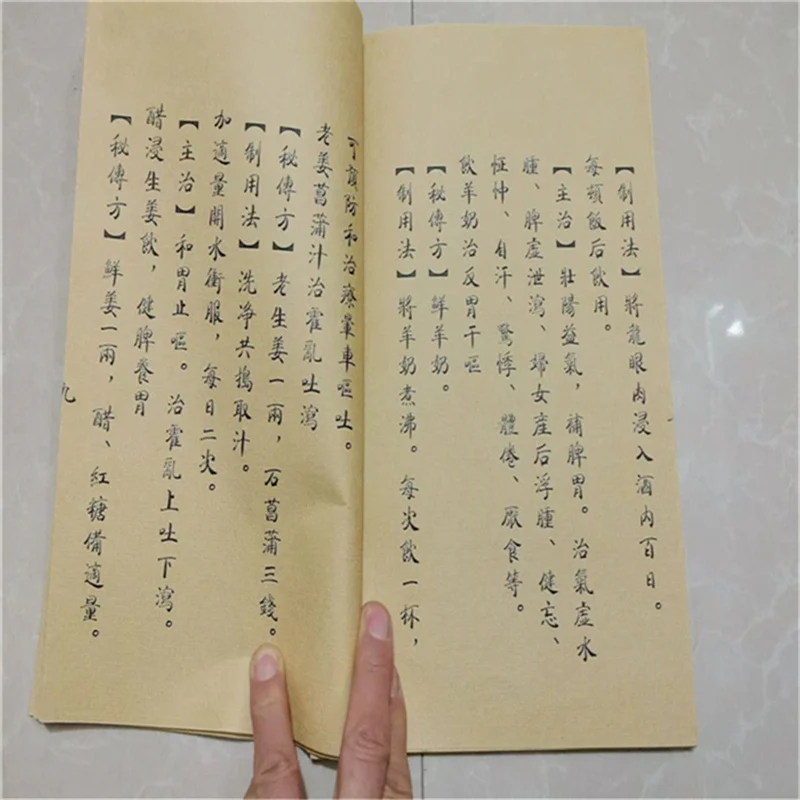 【制用法】將龍眼肉浸入酒內百日。
每頓飯后飲用。
【主治】壯陽益氣，補脾胃。治氣虛水
腫、脾虛泄瀉、婦女產后浮腫、健忘、
怔忡、自汗、驚悸、體倦、厭食等。
飲羊奶治反胃干嘔
【秘傳方】鮮羊奶。
【制用法】將羊奶煮沸。每次飲一杯，
可預防和治療暈車嘔吐。
老姜菖蒲汁治霍亂吐瀉
【秘傳方】老生姜一兩，万菖蒲三錢。
【制用法】洗净共搗取汁。
加適量開水衝服，每日二次。
【主治】和胃止嘔。治霍亂上吐下瀉。
醋浸生姜飲，健脾養胃
【秘傳方】鮮姜一兩，醋、紅糖備適量。
九